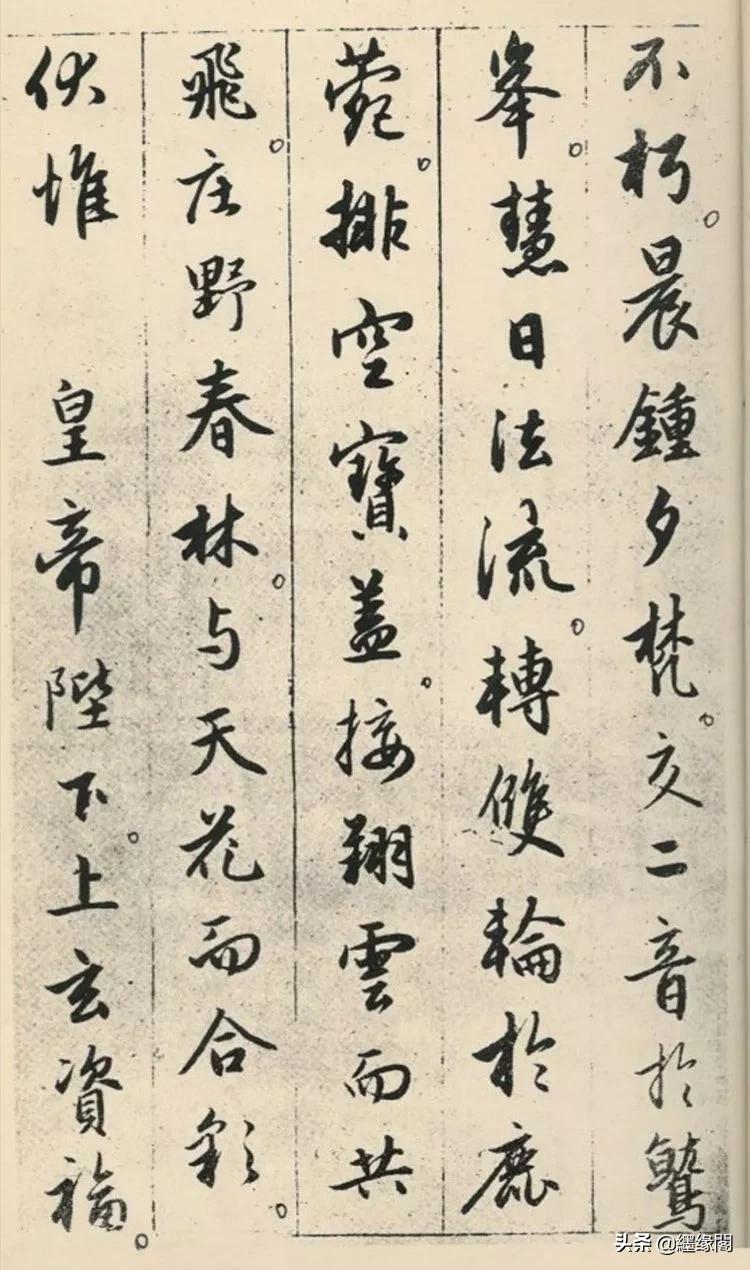 不朽。晨鍾夕梵。交二音於鷲
峯。慧日法流。轉雙輪於鹿
菀。排空寶蓋。接翔雲而共
飛。庄野春林。与天花而合彩。
伏惟　皇帝陛下。上玄資福。
头条 @纆缘阁